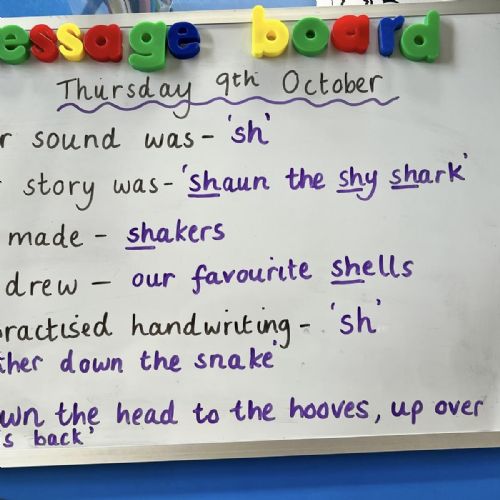 essage board
Thursday 9th October
r sound was - 'sh'
story was - 'shaun the shy shark'
made - shakers
drew - our favourite shells
ractised handwriting - 'sh'
ther down the snake'
wn the head to the hooves, up over
s back'